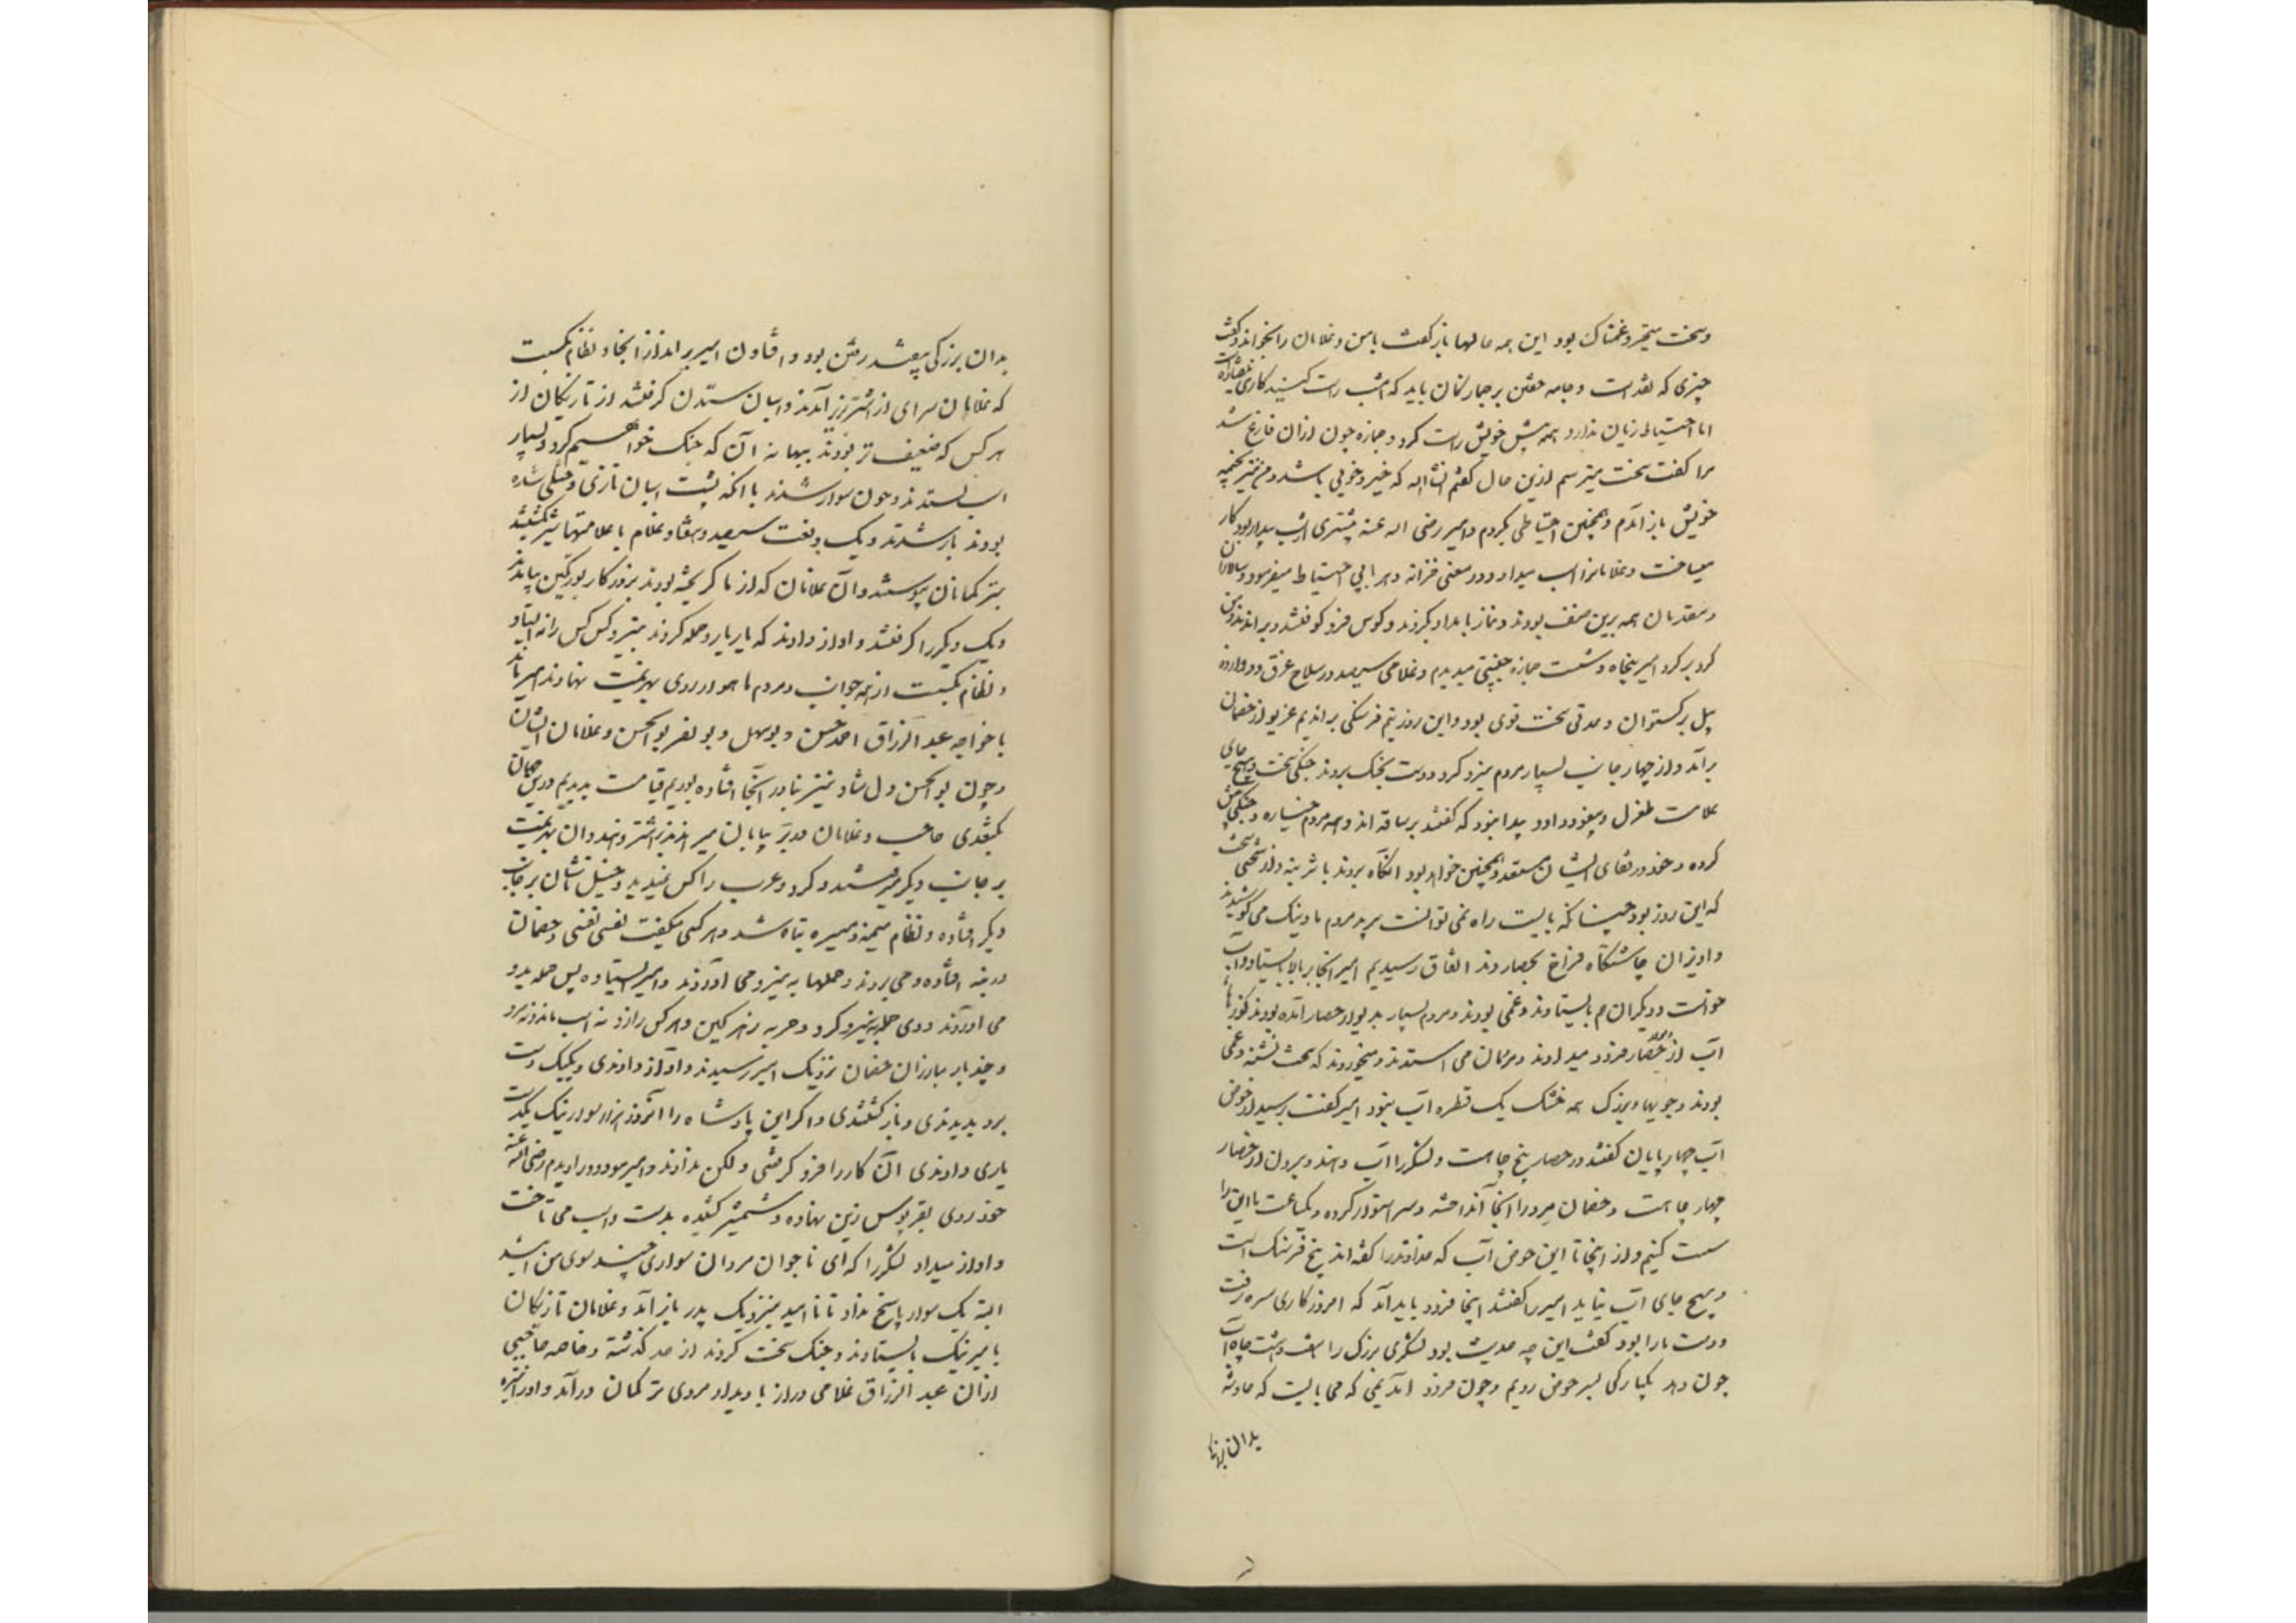 وسخت متحیر و غمناک بود این همه حالها باز گفت بامن و غلامان را بخواند و گفت
چیزی که نقد است و جامه برجمازکان باید که امشب راست کنید کاری
اما احتیاط زیان ندارد و همه پیش خویش راست کرد و جمازه چون ازان فارغ شد
مرا گفت سخت میترسم ازین حال گفتم انشا اله که خیر و خوبی باشد و من نیز بخیمه
خویش باز آمدم و همچنین احتیاطی بکردم و امیر رضی اله عنه بیشتری از شب بیدار بود کار
میساخت و غلامانرا اسب میداد و در معنی خزانه و هر بابی احتیاط میفرمود و سالاران
و مقدمان همه برین صفت بودند و نماز بامداد بکردند و کوس فرو کوفتند و براندند و من
گرد بر گرد امیر پنجاه و شست جمازه جنیبتی میدیدم و غلامی سیصد در سلاح غرق و دوازده
پیل بر گستوان و عدتی سخت قوی بود و این روز نیم فرسنگی براندیم غریو از خصمان
برآمد و از چهار جانب بسیار مردم نیرو کرد و دست بجنک بردند جنکی سخت و هیچ جای
علامت طغرل و یبغو و داود پیدا نبود که گفتند بر ساقه اند و همه مردم خیاره و جنکی پیش
کرده و خود در قفای ایشان مستعد و همچنین خواهد بود انگاه بردند با ثر بنه و از سختی سخت
که این روز بود چنانکه بایست راه نمی توانست برید مردم ما و نیک می کوشیدند
و اویزان چاشتگاه فراخ بحصار دند انقاق رسیدیم امیر انجا بر بالا بایستاد و آب
خواست و دیگران هم بایستادند و غمی بودند و مردم بسیار بدیوار حصار آمده بودند کوزها
آب از دیوار حصار فرود میدادند و مردمان می استدند و میخوردند که سخت تشنه و غمی
بودند و جویها و بزرک همه خشک یک قطره آب نبود امیر گفت پرسید از حوض
آب چهار پایان گفتند در حصار پنج چاه است و لشکر را آب دهند و بیرون از حصار
چهار چاه است و خصمان مردار انجا انداخته و سر استوار کرده و بیکساعت ما این را
راست کنیم و از اینجا تا این حوض آب که خداوند را گفته اند پنج فرسنک است
و هیچ جای آب نیابد امیر را گفتند اینجا فرود باید آمد که امروز کاری سره رفت
و دست مارا بود گفت این چه حدیث بود لشکری بزرک را هفت و هشت چاه آب
چون دهد یکبارکی بسر حوض رویم و چون فرود آمدیمی که می بایست که حادثه
بدان
بدان بزرکی بیفتد رفتن بود و افتادن امیر براند از انجا و نظام بگسست
که غلامان سرای از اشتر بزیر آمدند و اسبان ستدن گرفتند از تازیکان از
هر کس که ضعیف تر بودند ببهانه آن که جنک خواهیم کرد و بسیار
اسب بستدند و چون سوار شدند با انکه بشب اسبان تازی و ختلی ستده
بودند یار شدند و بیک دفعت سیصد و هفتاد غلام با علامتهای شیر بگشتند
بترکمانان پیوستند و آن غلامان که از ما گریخته بودند بروزگار بورتکین بیامدند
و یک دیگر را گرفتند و اواز دادند که یار یار و حمله کردند بنیرو و کس کس را نه ایستاد
و نظام بگسست از همه جوانب و مردم ما همه روی بهزیمت نهادند امیر ماند
با خواجه عبد الرزاق احمد حسن و بوسهل و بو نصر بو الحسن و غلامان ایشان
و چون بو الحسن دل شاد نیز نادر آنجا افتاده بودیم قیامت بدیدیم درین جهان
بکتغدی حاجب و غلامان در بیابان میراندند بر اشتر و هندوان بهزیمت
بر جانب دیگر میرفتند و کرد و عرب را کس نمیدید و خیلتاشان بر جانب
دیگر افتاده و نظام میمنه و میسره تباه شد و هر کسی میگفت نفسی نفسی و خصمان
در بنه افتاده و می بردند و حملها به نیرو می آوردند و امیر ایستاده پس حمله بدو
می آوردند و وی حمله به نیرو کرد و حربه زهر آگین و هر کس را زد نه اسب ماند و نه مرد
و چند بار مبارزان خصمان نزدیک امیر رسیدند و اواز دادندی و یکیک دست
برد بدیدندی و باز گشتندی و اگر این پادشاه را انروز هزار سوار نیک یکدست
یاری دادندی آن کار را فرو گرفتی و لکن ندادند و امیر مودود را دیدم رضی الله عنه
خود روی بقربوس زین نهاده و شمشیر کشیده بدست و اسب می تاخت
و اواز میداد لشکر را که ای نا جوان مردان سواری چند سوی من ایید
البته یک سوار پاسخ نداد تا نا امید بنزدیک پدر باز آمد و غلامان تازیکان
با امیر نیک بایستادند و جنک سخت کردند از حد گذشته و خاصه حاجبی
ازان عبد الرزاق غلامی دراز با دیدار مردی ترکمان در آمد و او را نیزه